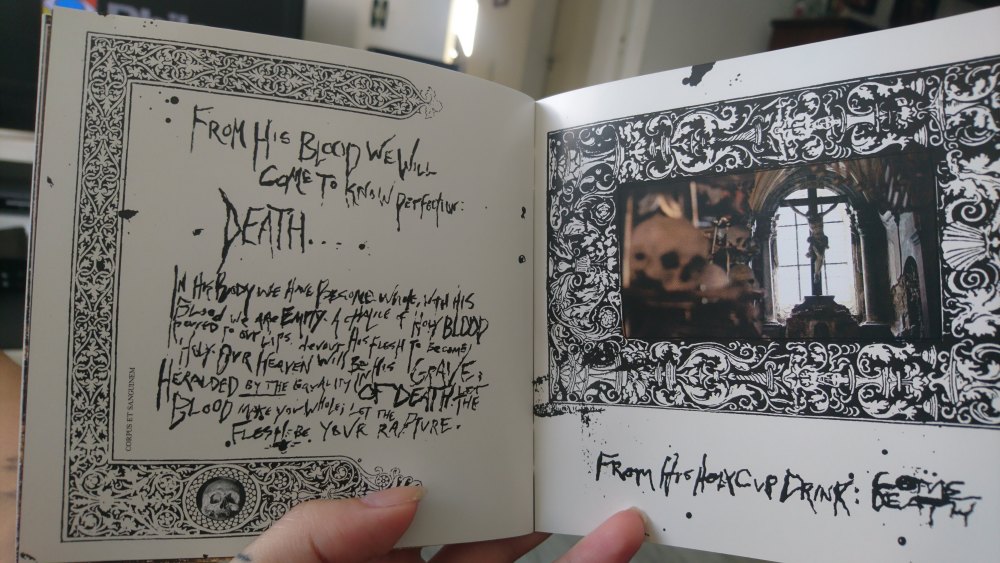 FROM HIS BLOOD WE WILL
COME TO KNOW PERFECTION:
DEATH...
IN HIS BODY WE HAVE BECOME WHOLE, WITH HIS
BLOOD WE ARE EMPTY. A CHALICE OF HOLY BLOOD
POURED TO OUR LIPS, DEVOUT HIS FLESH TO BECOME
HOLY. OUR HEAVEN WILL BE HIS GRAVE;
HERALDED BY THE EQUALITY IN OF DEATH. LET THE
BLOOD MAKE YOU WHOLE; LET THE
FLESH BE YOUR RAPTURE.
CORPUS ET SANGUINEM
FROM HIS HOLY CUP DRINK: COME
DEATH